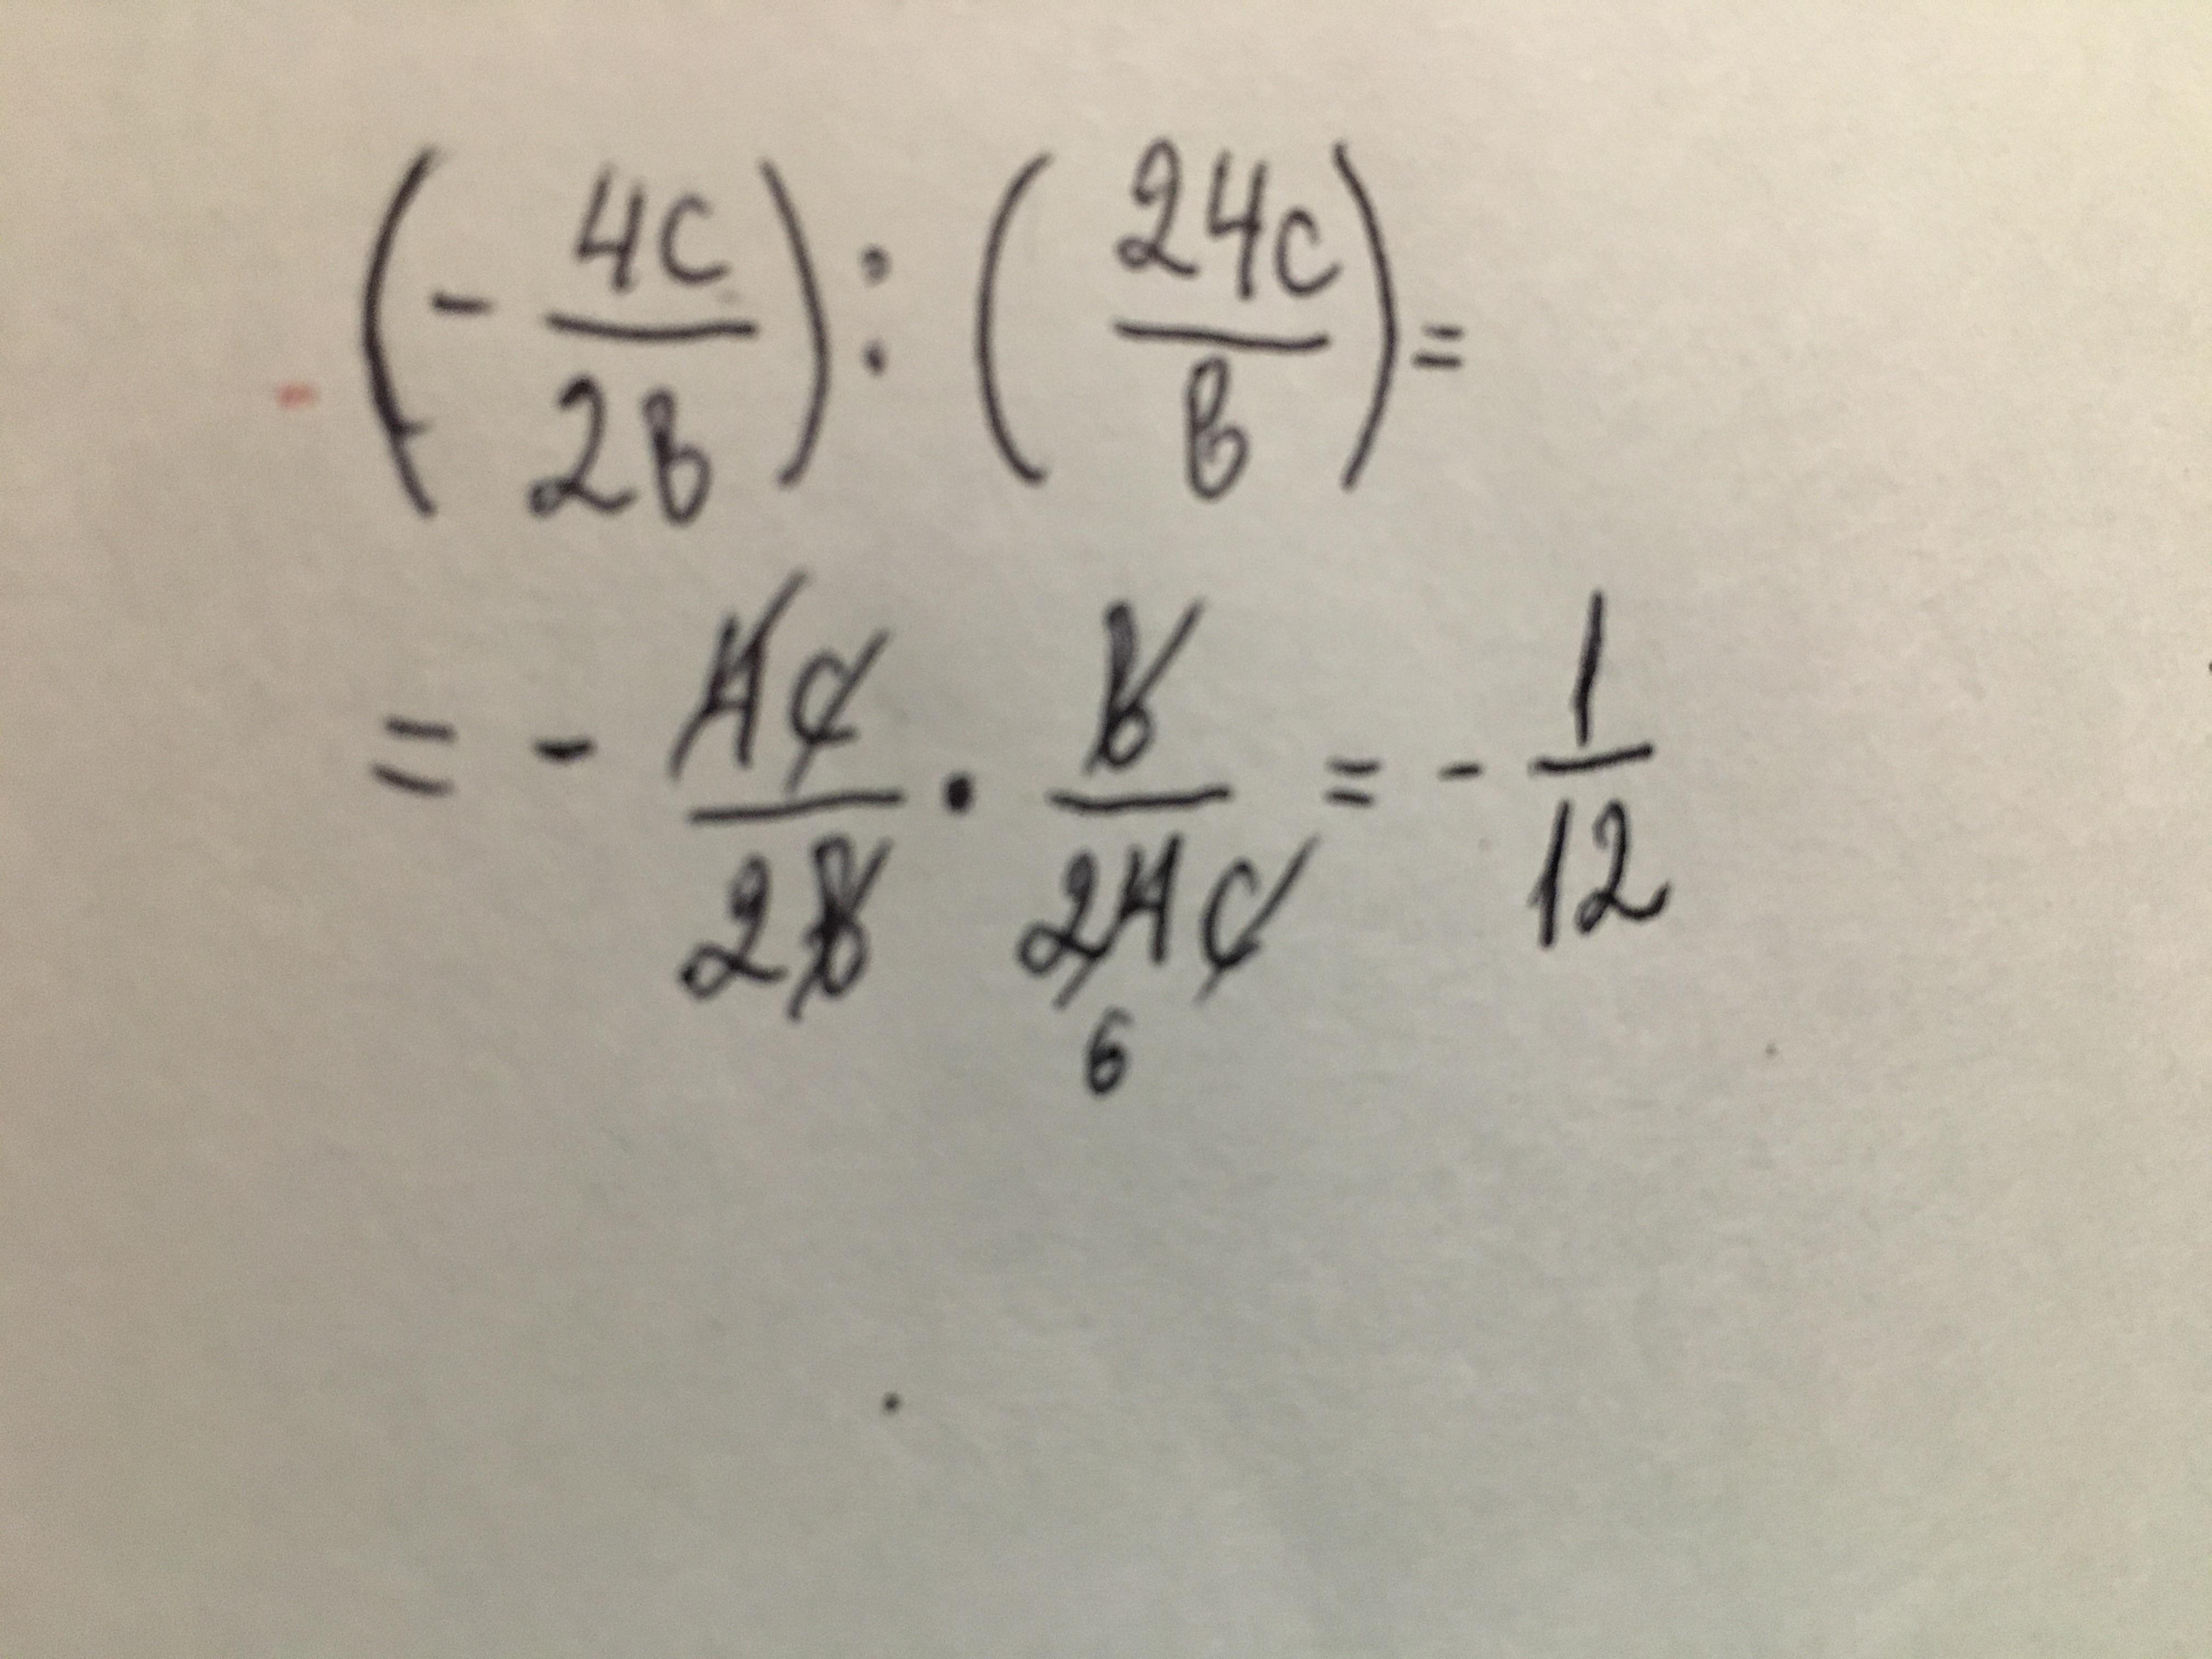 (- 4c/2b) : (24c/b) =
= - 4c/2b · b/24c = - 1/12
6